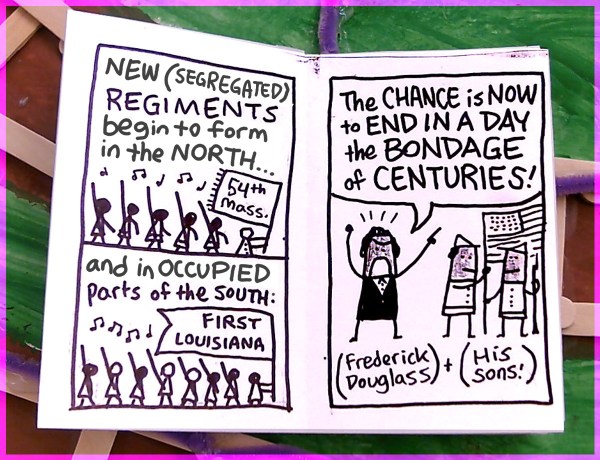 NEW (SEGREGATED)
REGIMENTS
begin to form
in the NORTH...
54th
mass.
and in OCCUPIED
parts of the SOUTH:
FIRST
LOUISIANA
The CHANCE is NOW
to END IN A DAY
the BONDAGE
of CENTURIES!
(Frederick
Douglass) + (His
sons!)